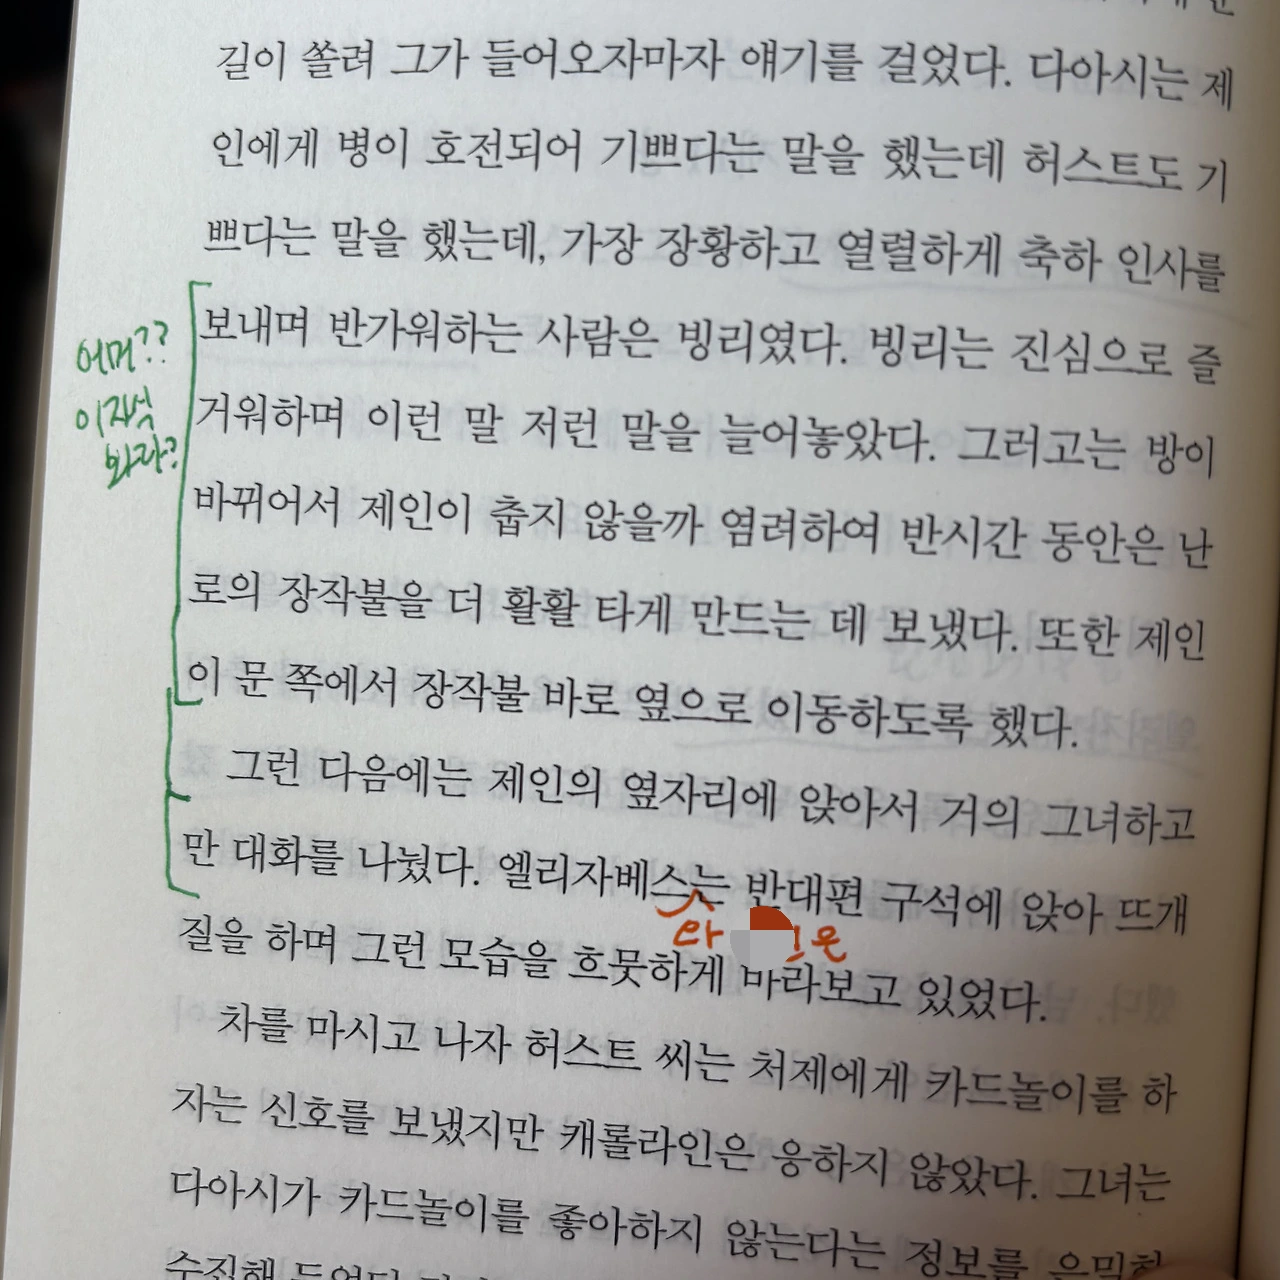 길이 쏠려 그가 들어오자마자 얘기를 걸었다. 다아시는 제
인에게 병이 호전되어 기쁘다는 말을 했는데 허스트도 기
쁘다는 말을 했는데, 가장 장황하고 열렬하게 축하 인사를
보내며 반가워하는 사람은 빙리였다. 빙리는 진심으로 즐
거워하며 이런 말 저런 말을 늘어놓았다. 그러고는 방이
바뀌어서 제인이 춥지 않을까 염려하여 반시간 동안은 난
로의 장작불을 더 활활 타게 만드는 데 보냈다. 또한 제인
이 문 쪽에서 장작불 바로 옆으로 이동하도록 했다.
어머??
이자식
봐라?
그런 다음에는 제인의 옆자리에 앉아서 거의 그녀하고
만 대화를 나눴다. 엘리자베스는 반대편 구석에 앉아 뜨개
질을 하며 그런 모습을 흐뭇하게 바라보고 있었다.
차를 마시고 나자 허스트 씨는 처제에게 카드놀이를 하
자는 신호를 보냈지만 캐롤라인은 응하지 않았다. 그녀는
다아시가 카드놀이를 좋아하지 않는다는 정보를